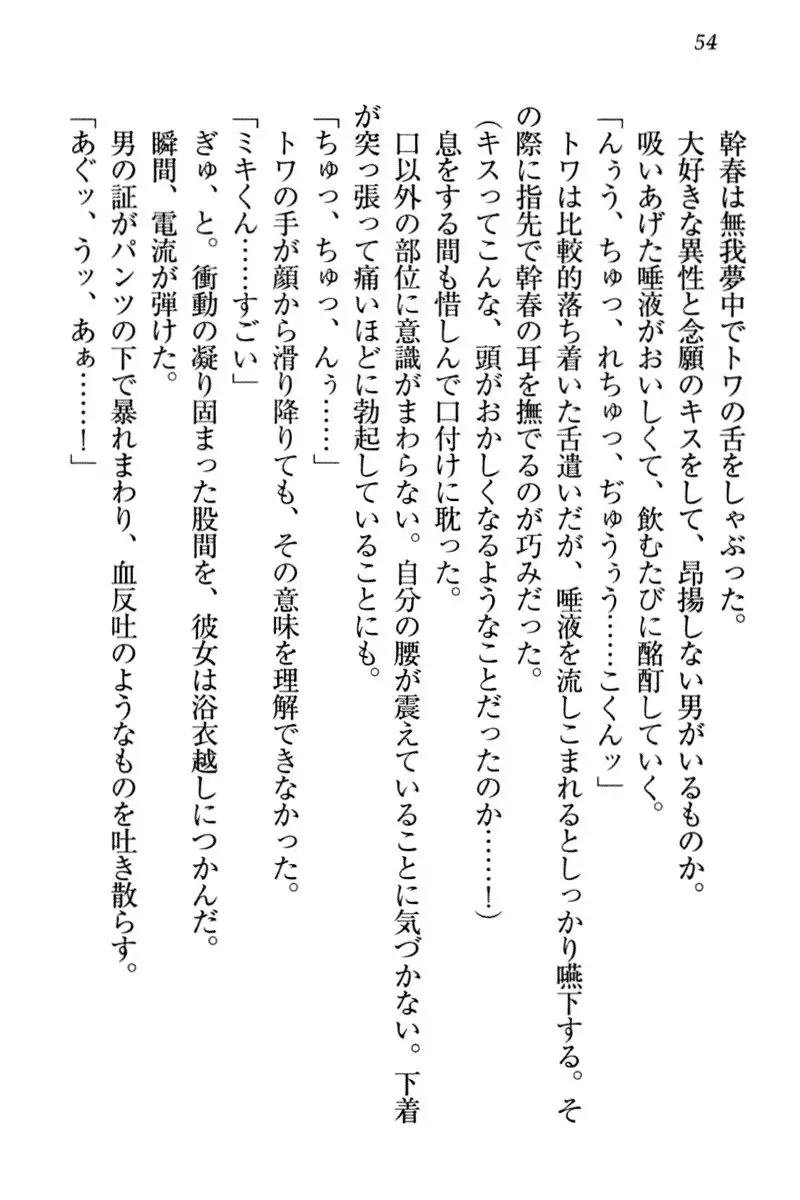 54
幹春は無我夢中でトワの舌をしゃぶった。
大好きな異性と念願のキスをして、昂揚しない男がいるものか。
吸いあげた唾液がおいしくて、飲むたびに酩酊していく。
「んぅう、ちゅっ、れちゅっ、ぢゅうぅう……こくんッ」
トワは比較的落ち着いた舌遣いだが、唾液を流しこまれるとしっかり嚥下する。そ
の際に指先で幹春の耳を撫でるのが巧みだった。
(キスってこんな、頭がおかしくなるようなことだったのか……！)
息をする間も惜しんで口付けに耽った。
口以外の部位に意識がまわらない。自分の腰が震えていることに気づかない。下着
が突っ張って痛いほどに勃起していることにも。
「ちゅっ、ちゅっ、んぅ……」
トワの手が顔から滑り降りても、その意味を理解できなかった。
「ミキくん……すごい」
ぎゅ、と。衝動の凝り固まった股間を、彼女は浴衣越しにつかんだ。
瞬間、電流が弾けた。
男の証がパンツの下で暴れまわり、血反吐のようなものを吐き散らす。
「あぐッ、うッ、あぁ……！」